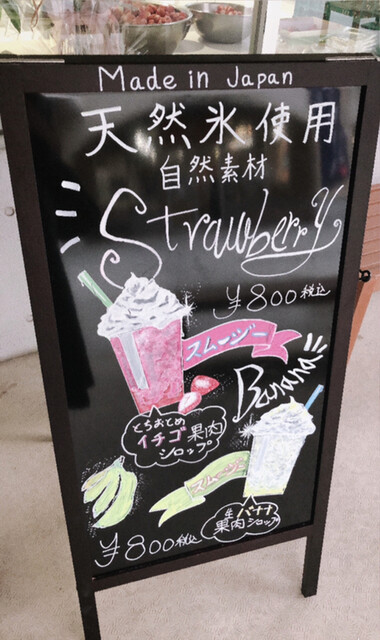 Made in Japan
天然氷使用
自然素材
Strawberry
¥800税込
スムージー
Banana
とちおとめ
イチゴ果肉
シロップ
スムージー
生バナナ
果肉シロップ
¥800税込